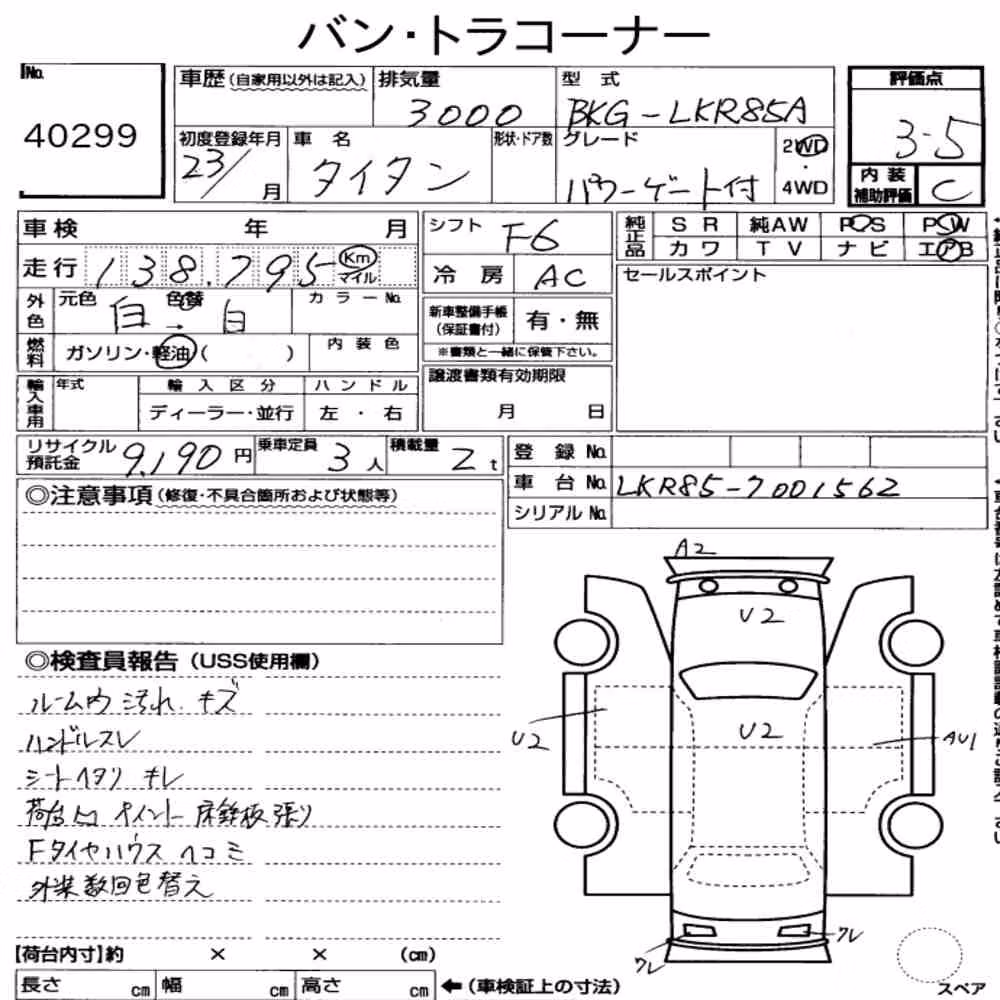 バン・トラコーナー
No.
40299
車歴(自家用以外は記入)
排気量
3000
型 式
BKG-LKR85A
評価点
3.5
初度登録年月
23/ 月
車 名
タイタン
形状・ドア数
グレード
パワーゲート付
2WD
・
4WD
内 装
補助評価
C
車検 年 月
走行 138,795 Km マイル
外色
元色 白 → 色替 白
カラーNo.
燃料
ガソリン・軽油( )
内 装 色
輸入車用
年式
輸 入 区 分
ディーラー・並行
ハ ン ド ル
左 ・ 右
シフト F6
冷 房 AC
新車整備手帳
(保証書付)
有・無
※書類と一緒に保管下さい。
譲渡書類有効期限
月 日
純正品
S R 純AW P S P W
カ ワ T V ナ ビ エアB
セールスポイント
リサイクル
預託金
9,190 円
乗車定員
3 人
積載量
2 t
登 録 No.
車 台 No. LKR85-7001562
シリアル No.
◎注意事項(修復・不具合箇所および状態等)
◎検査員報告(USS使用欄)
ルーム内 汚れ キズ
ハンドルスレ
シートヘタリ キレ
ペイント 床鉄板張り
Fタイヤハウス ヘコミ
外装数回色替え
A2
U2
U2
U2
AU1
ワレ
ワレ
スペア
【荷台内寸】約 × × (cm)
長さ cm 幅 cm 高さ cm ←(車検証上の寸法)